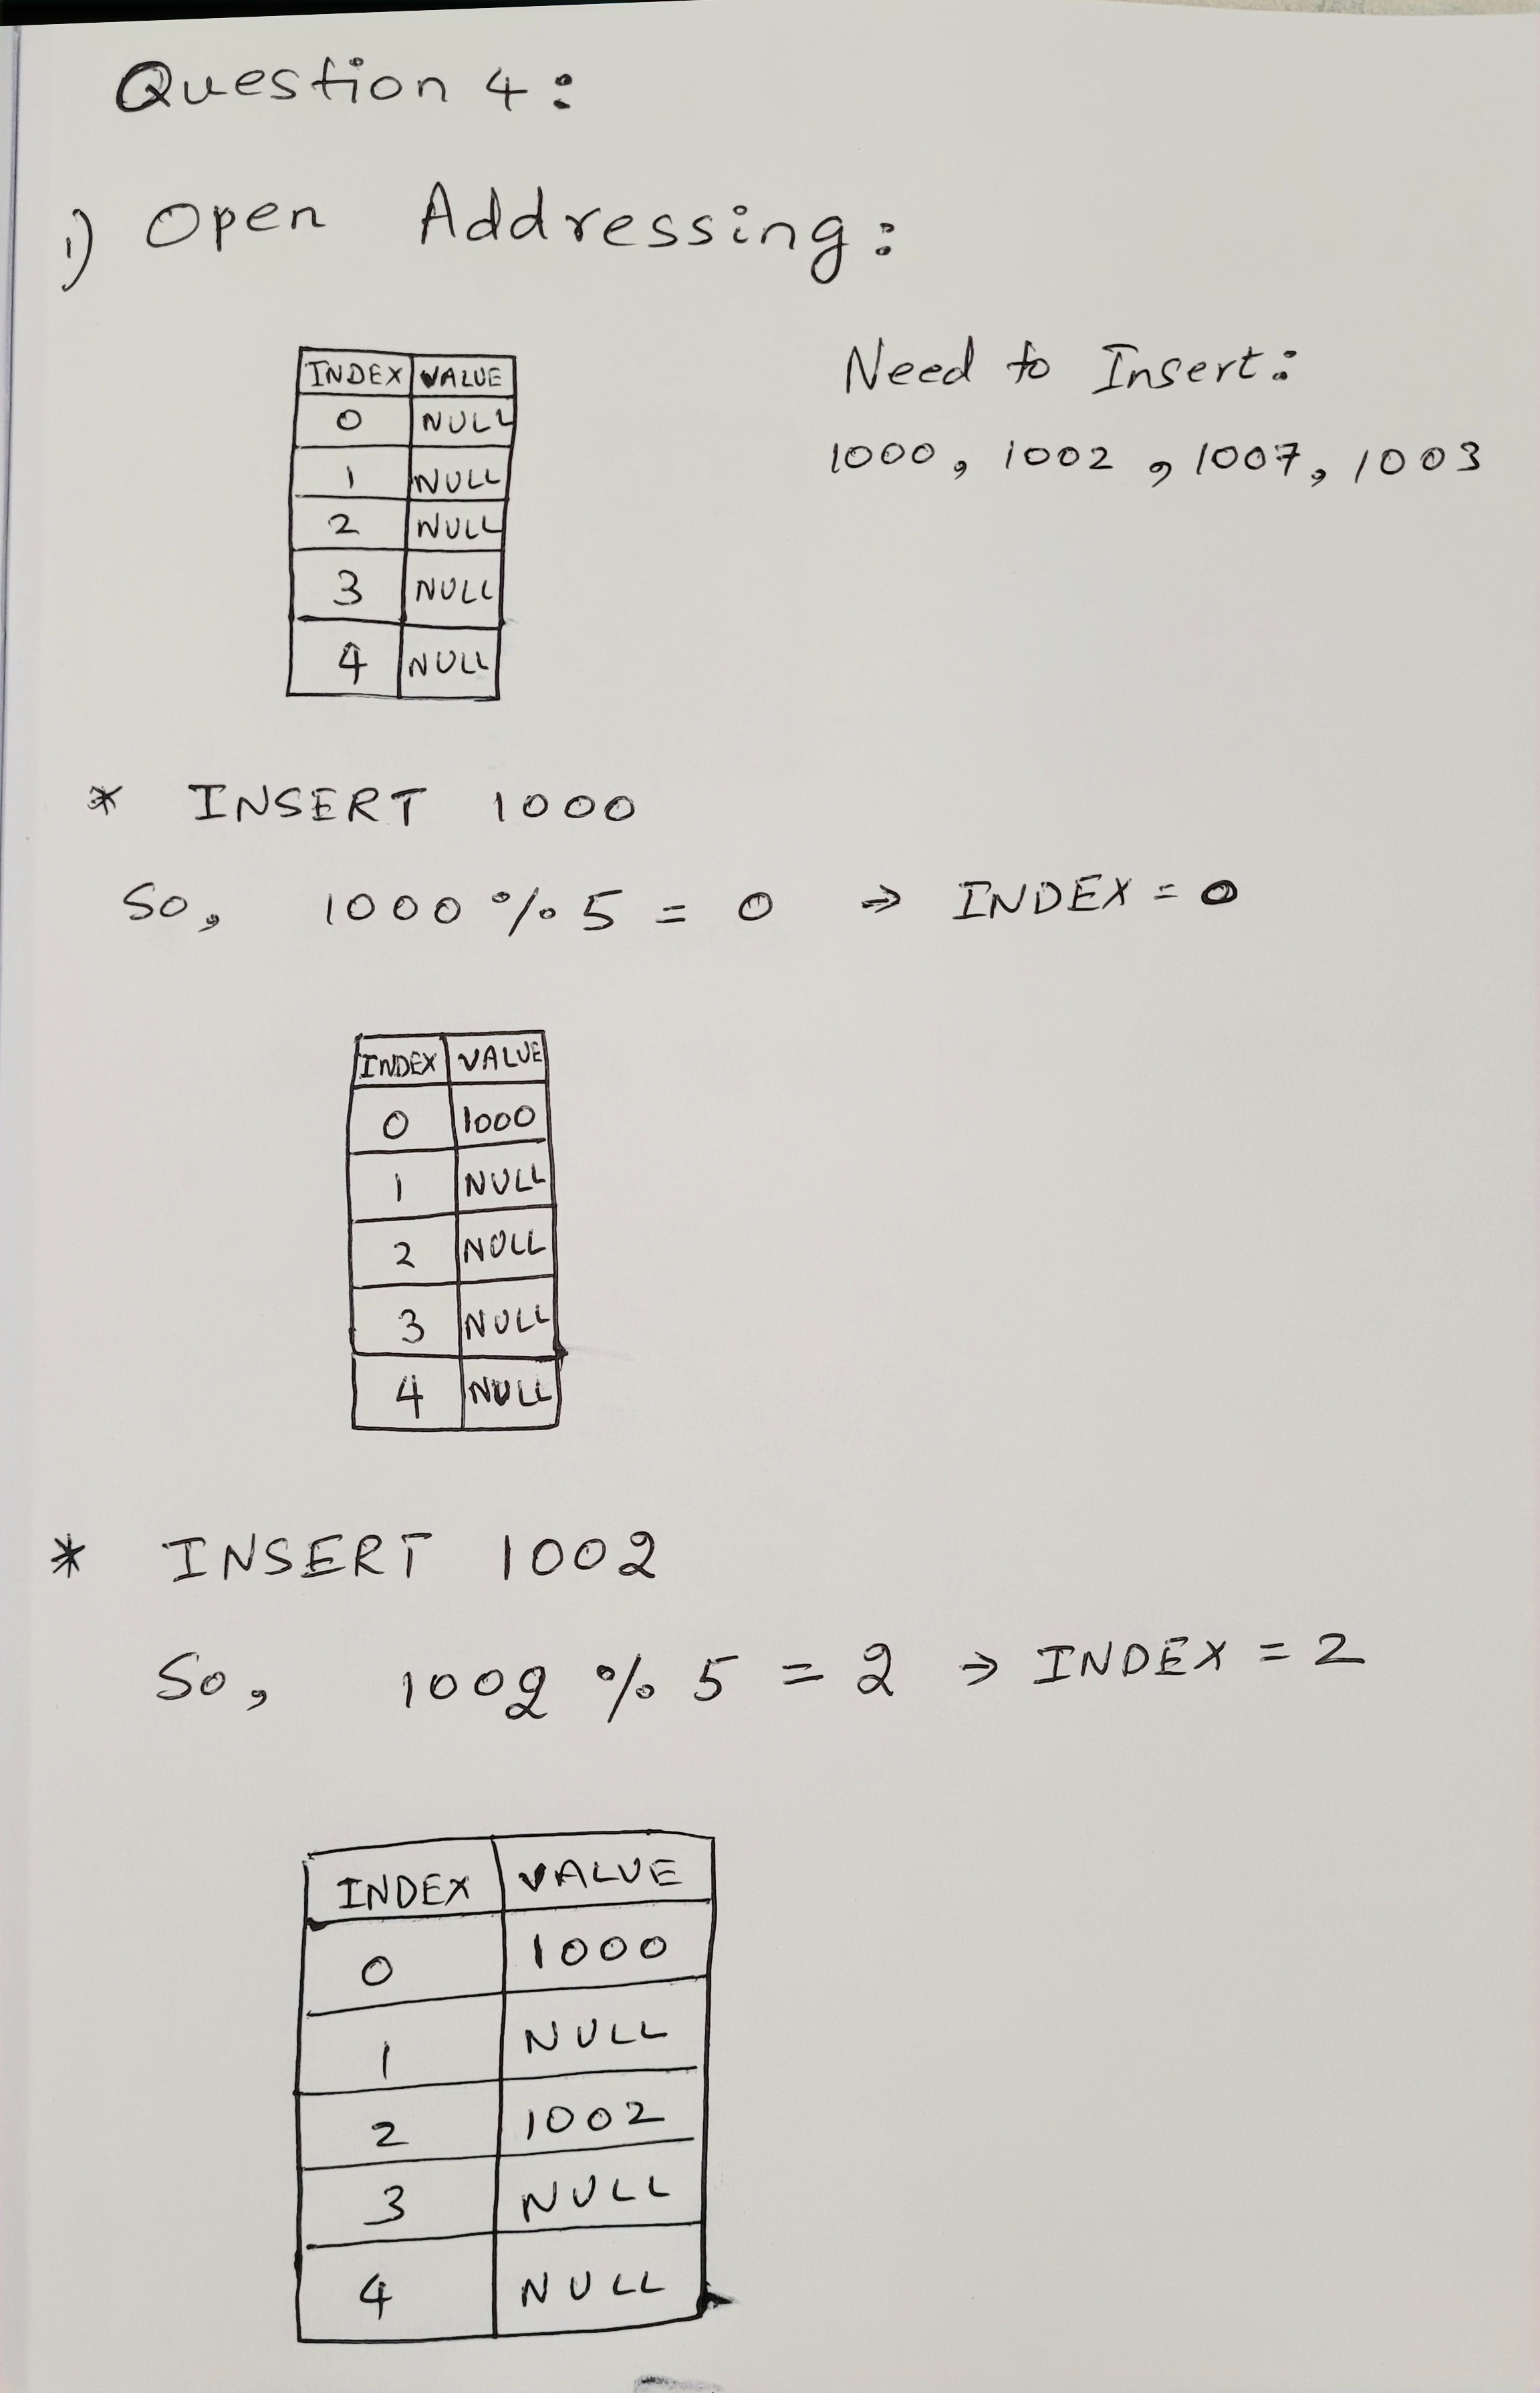 Question 4:
i) Open Addressing:
INDEX VALUE
0 NULL
1 NULL
2 NULL
3 NULL
4 NULL
Need to Insert:
1000, 1002, 1007, 1003
* INSERT 1000
So, 1000 % 5 = 0 ⇒ INDEX = 0
INDEX VALUE
0 1000
1 NULL
2 NULL
3 NULL
4 NULL
* INSERT 1002
So, 1002 % 5 = 2 → INDEX = 2
INDEX VALUE
0 1000
1 NULL
2 1002
3 NULL
4 NULL